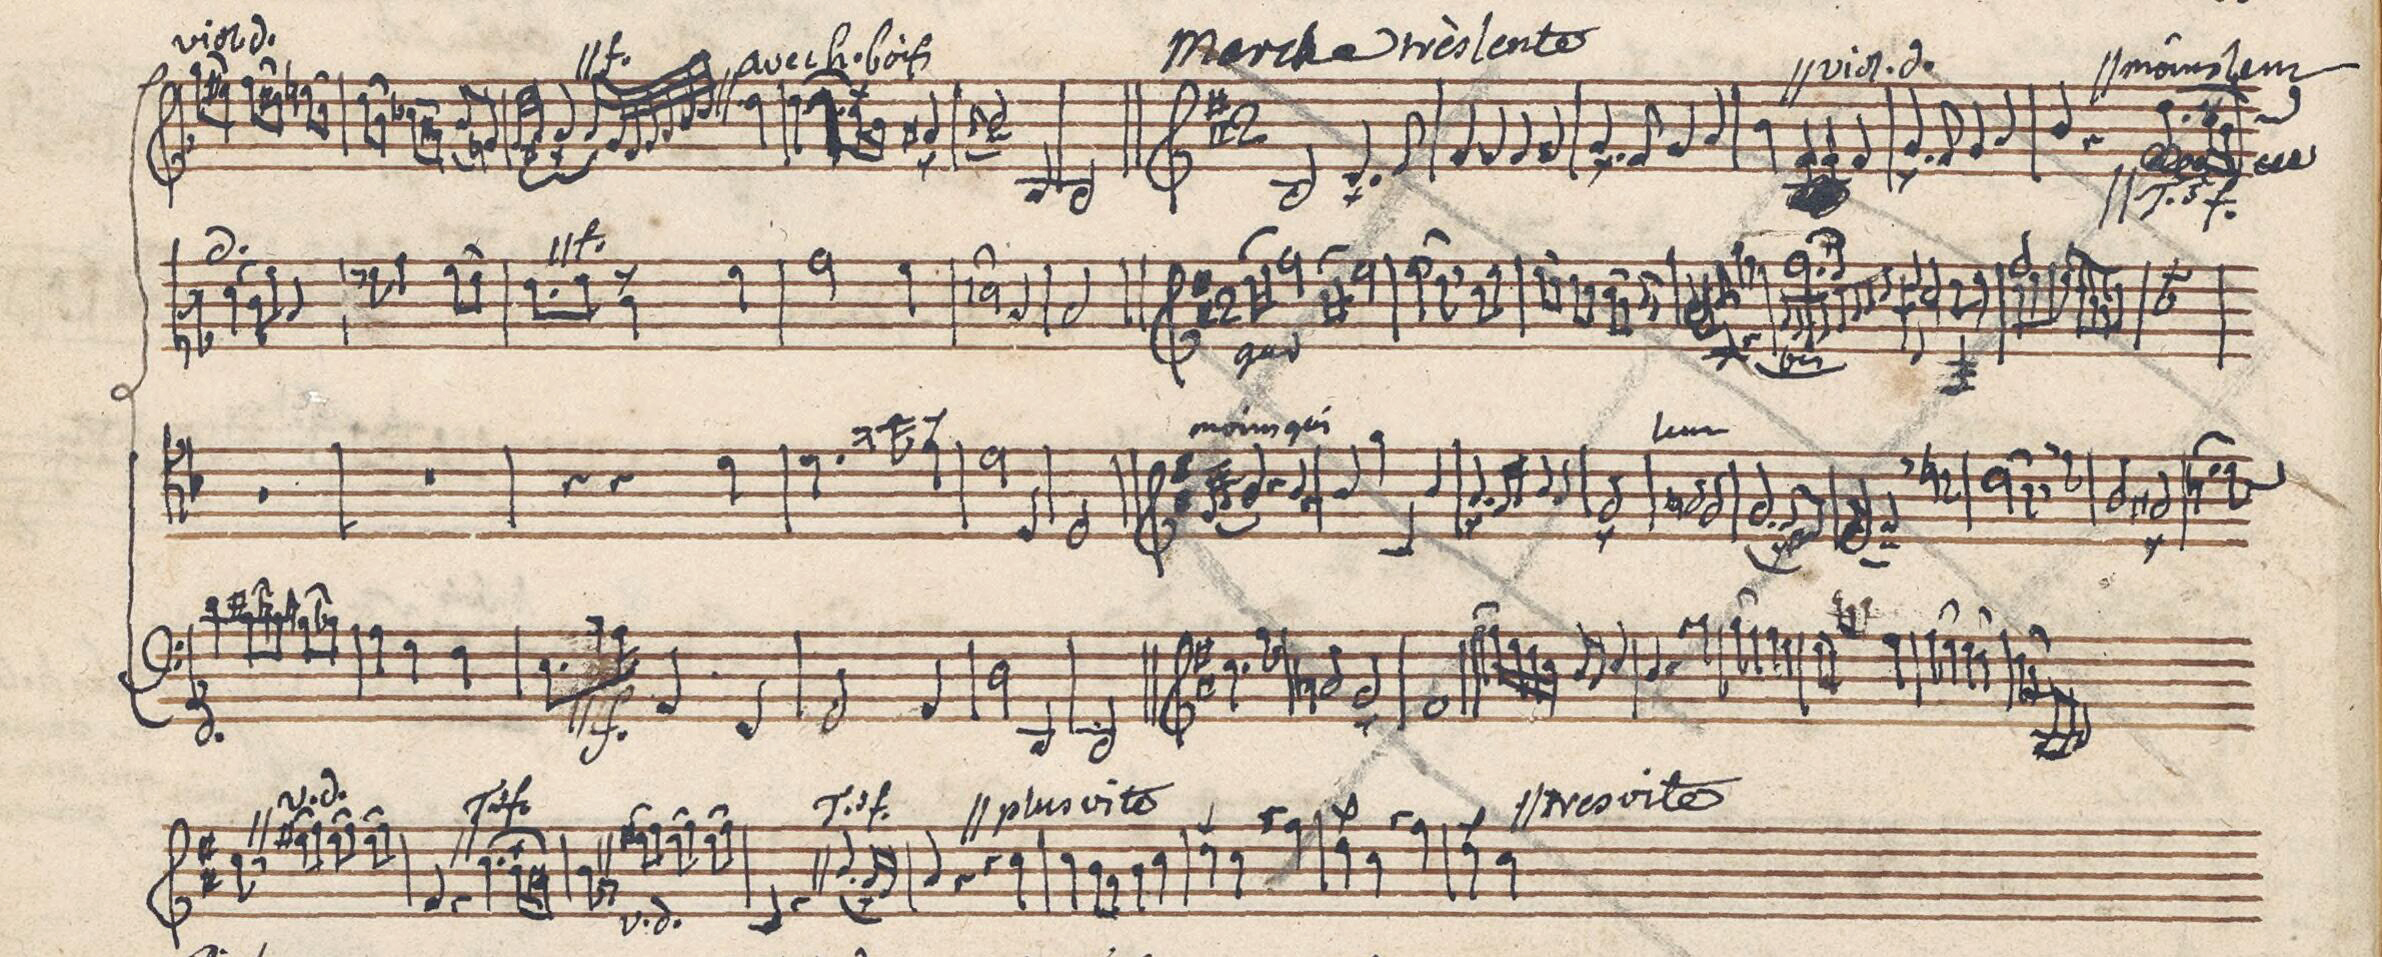 viol d. //f. //avec h.bois Marche très lente //viol. d. //moins lent
//T.s f.
d. //f.
moins qui lent
d. //f.
// v.d. T.s f. T.s f. //plus vite //tres vite
v.d.